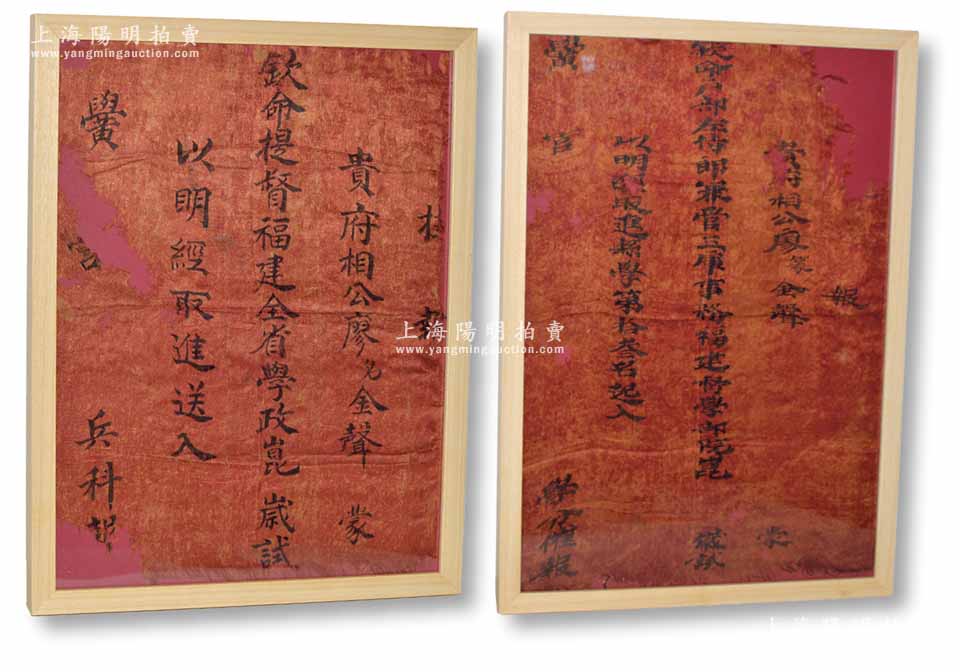 上海陽明拍賣
www.yangmingauction.com
捷
貴府相公廖兄金聲 蒙
欽命提督福建全省學政崑 歲試
以明經取進送入
黌 宮 兵科報
報
相公廖 金聲 蒙
欽命 部左侍郎兼管三庫事 福建督學部院崑 歲試
以明經取進縣學第拾叁名送入
黌 宮 報
上海陽明拍賣
www.yangmingauction.com